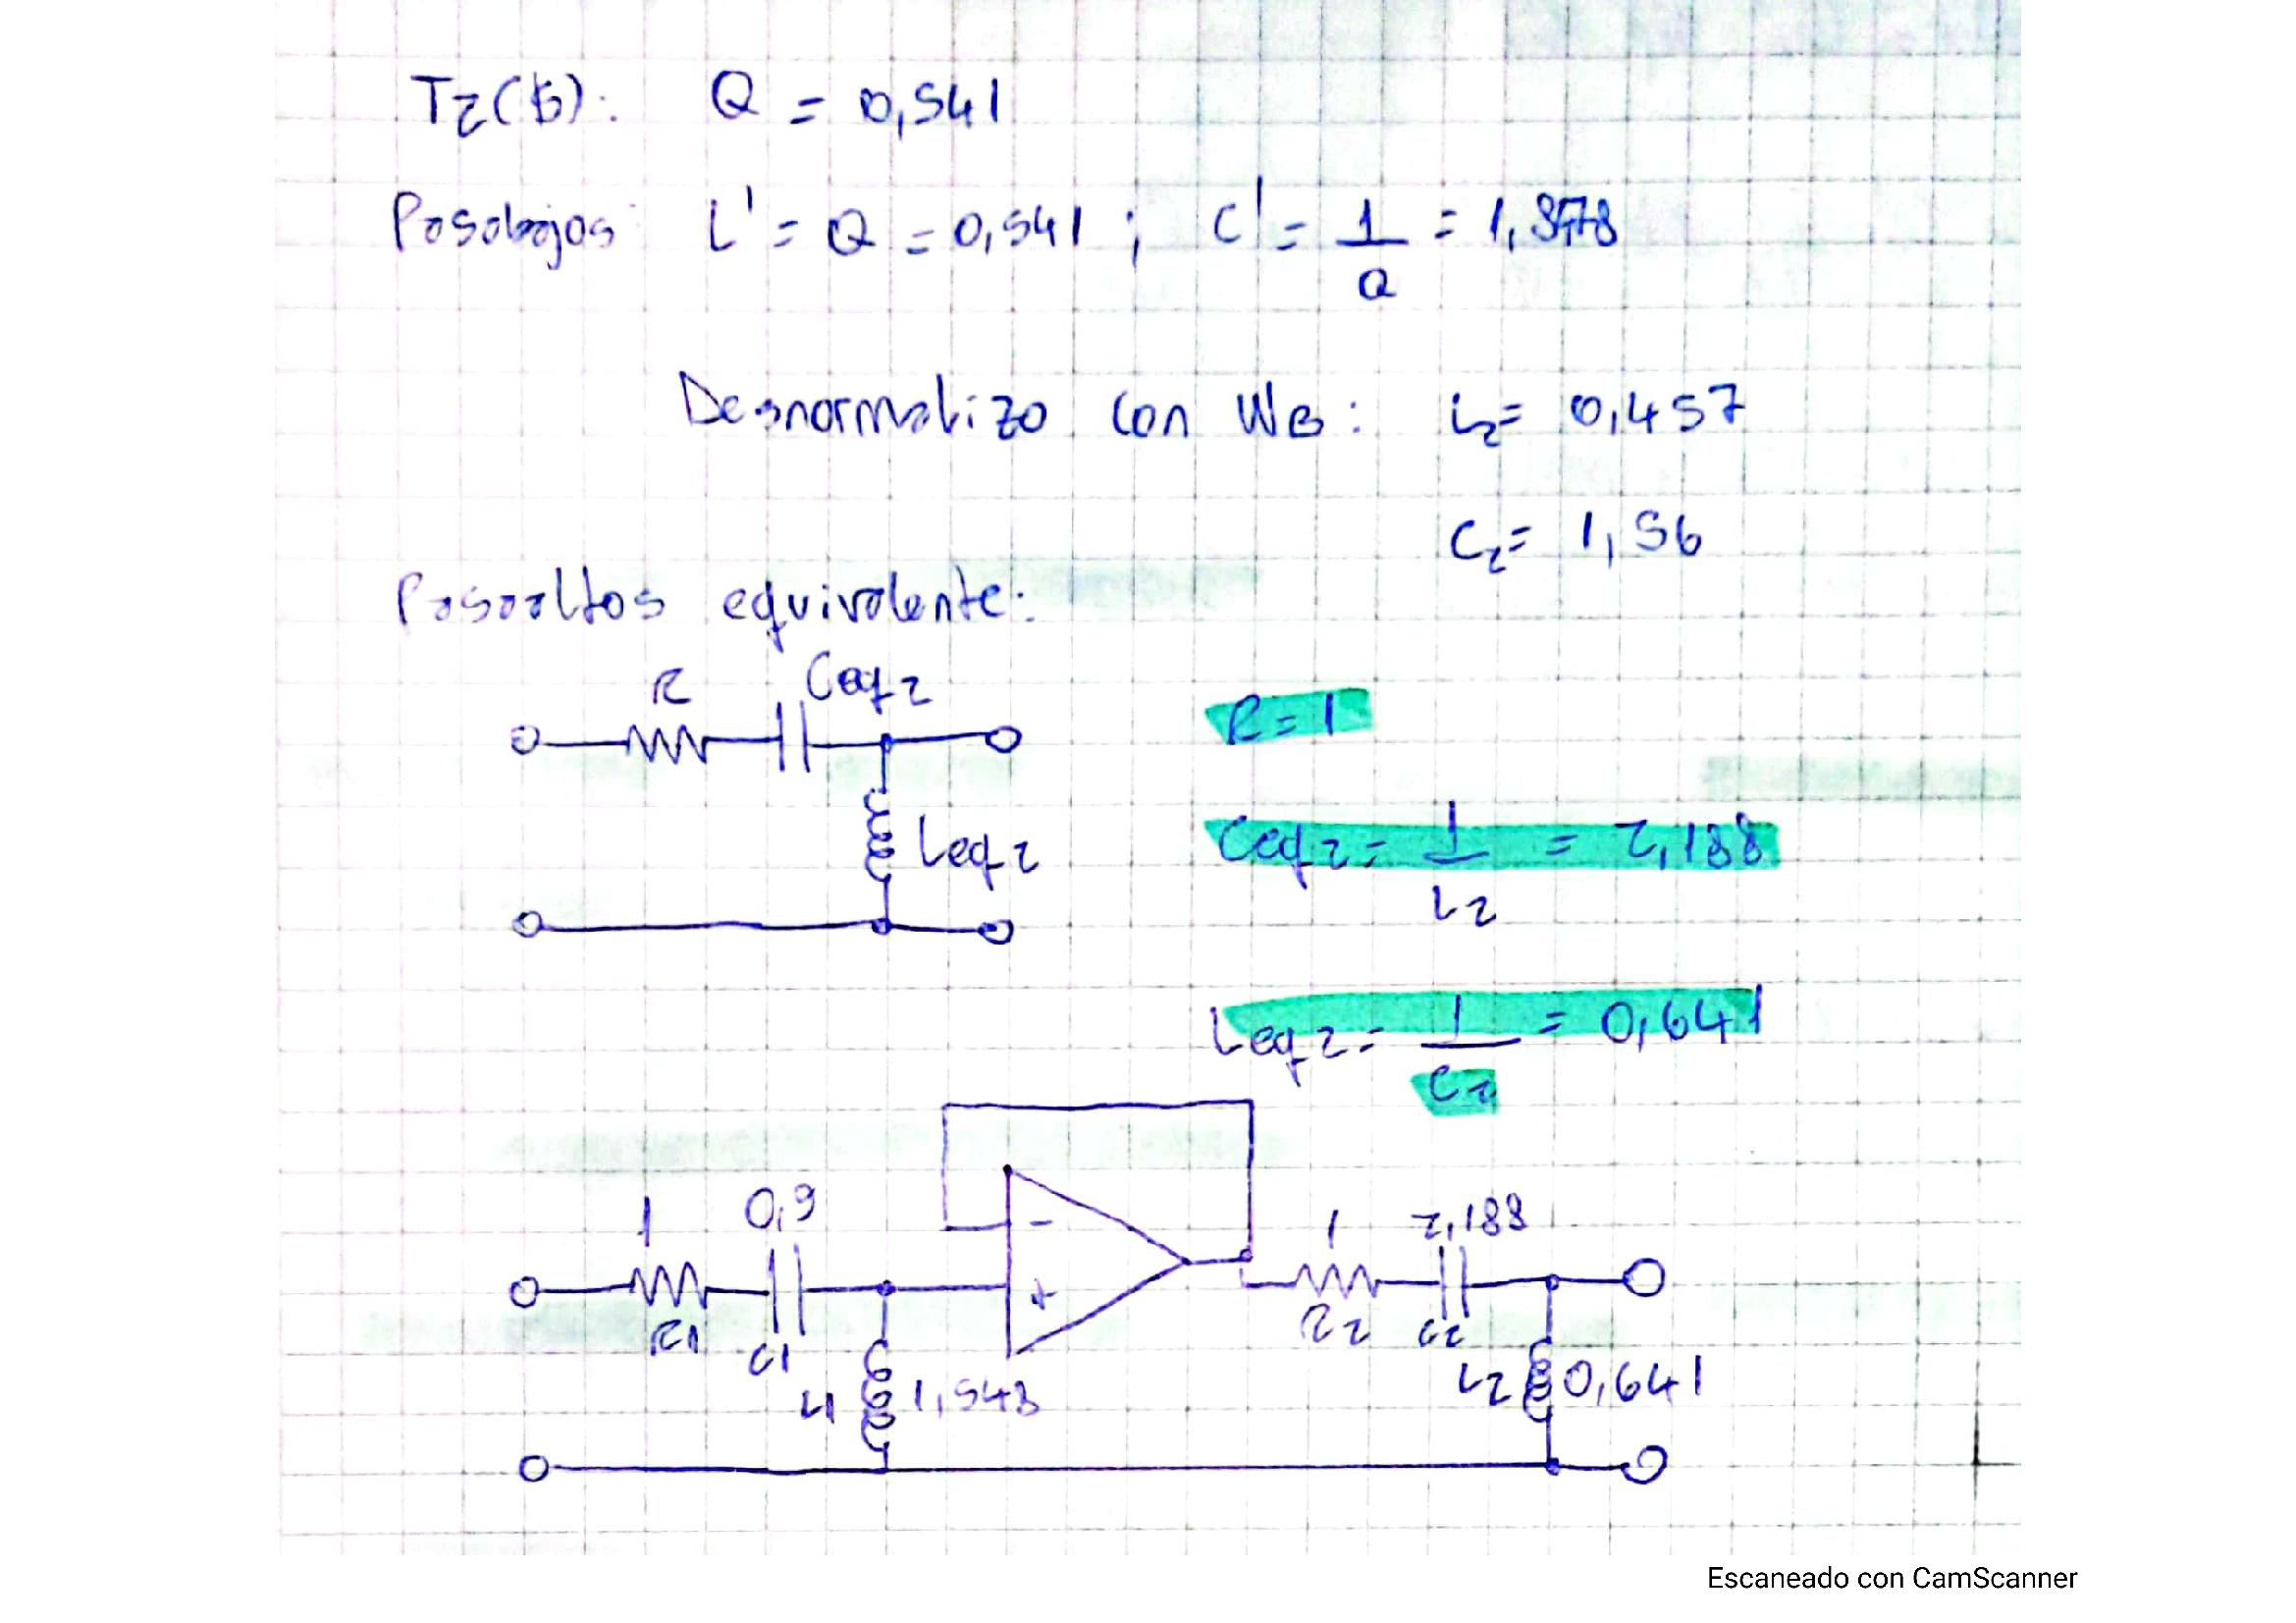 T2(s): Q = 0,541
Pasabajos: L' = Q = 0,541 ; C' = 1/Q = 1,848
Desnormalizo con WB: L2 = 0,457
C2 = 1,56
Pasaaltos equivalente:
R Ceq2
R = 1
Leq2
Ceq2 = 1/L2 = 2,188
Leq2 = 1/C2 = 0,641
1 0,9 - 1 2,188
+
R1 C1 R2 C2
L1 1,543 L2 0,641
Escaneado con CamScanner